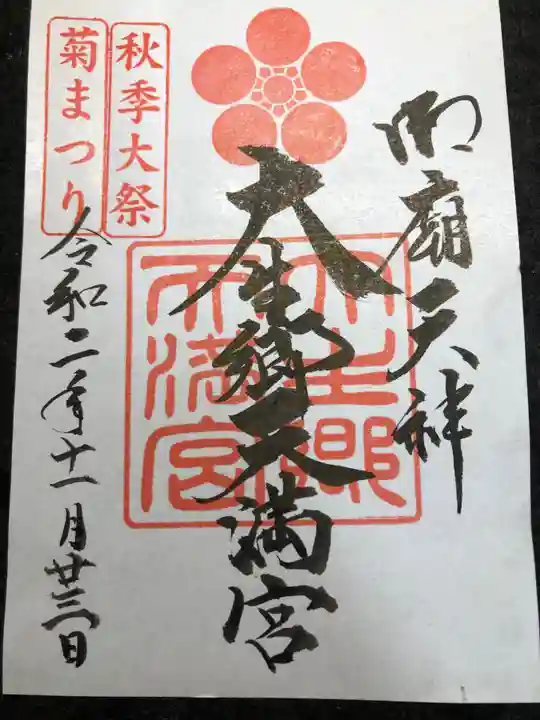 御廟天神
大生郷天満宮
大生郷
天満宮
秋季大祭
菊まつり
令和二年十一月廿三日